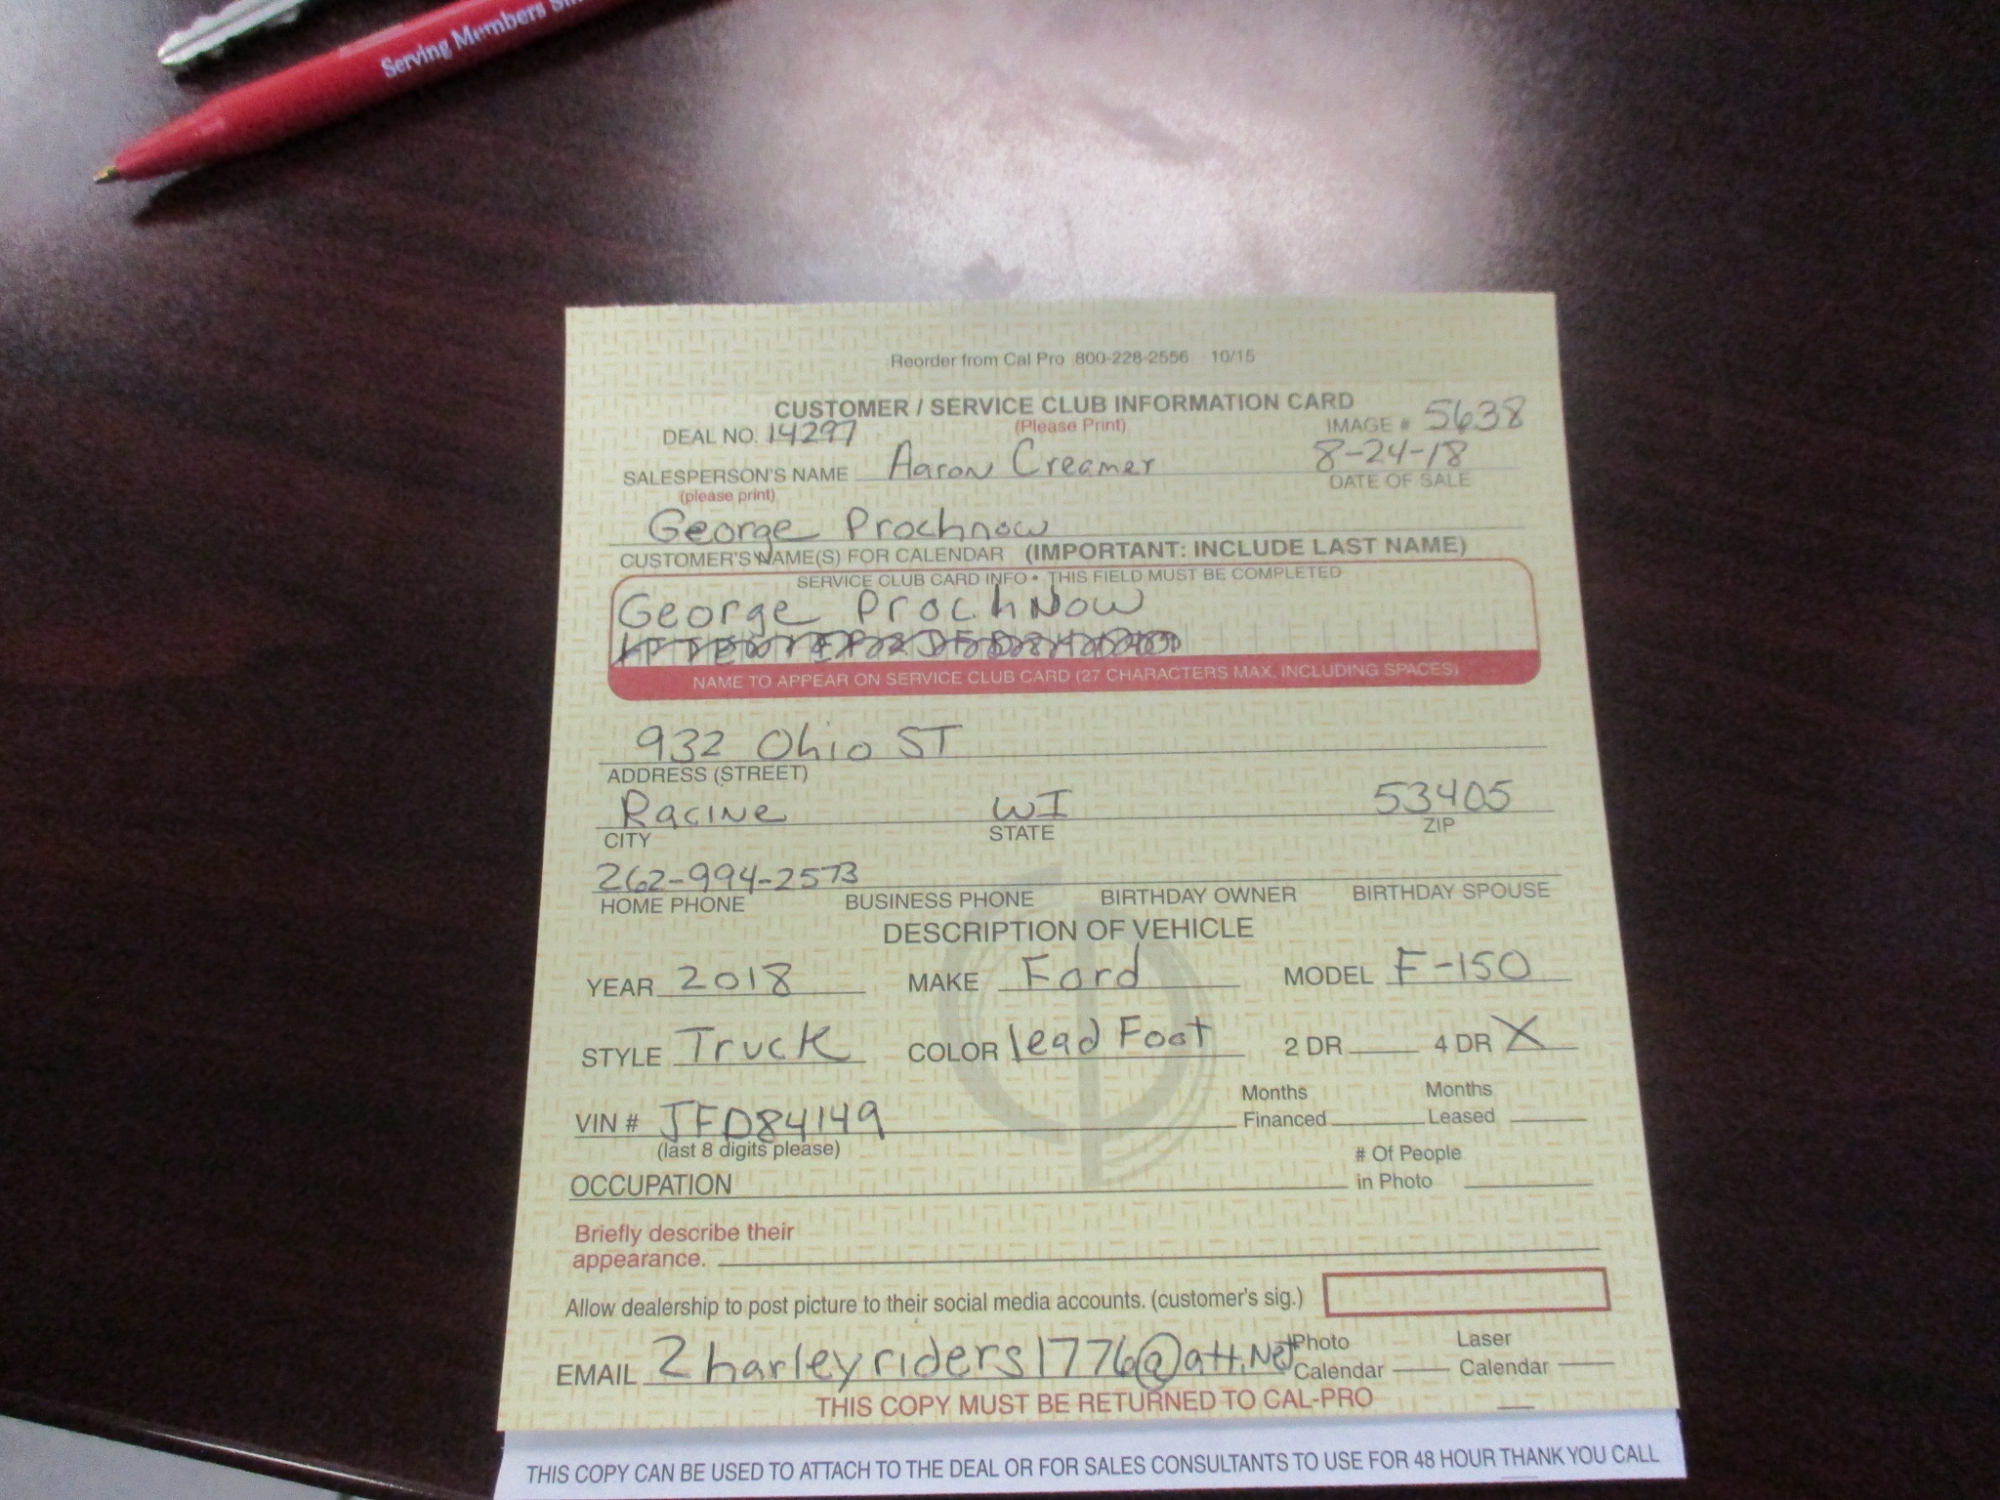 Serving Members
Reorder from Cal Pro 800-228-2556 10/15
CUSTOMER / SERVICE CLUB INFORMATION CARD
(Please Print)
DEAL NO. 14297
IMAGE # 5638
SALESPERSON'S NAME Aaron Creamer 8-24-18
(please print) DATE OF SALE
George Prochnow
CUSTOMER'S NAME(S) FOR CALENDAR (IMPORTANT: INCLUDE LAST NAME)
SERVICE CLUB CARD INFO • THIS FIELD MUST BE COMPLETED
George ProchNow
NAME TO APPEAR ON SERVICE CLUB CARD (27 CHARACTERS MAX. INCLUDING SPACES)
932 Ohio ST
ADDRESS (STREET)
Racine WI 53405
CITY STATE ZIP
262-994-2573
HOME PHONE BUSINESS PHONE BIRTHDAY OWNER BIRTHDAY SPOUSE
DESCRIPTION OF VEHICLE
YEAR 2018 MAKE Ford MODEL F-150
STYLE Truck COLOR lead Foot 2 DR 4 DR X
VIN # JFD84149 Months Financed Months Leased
(last 8 digits please)
OCCUPATION # Of People in Photo
Briefly describe their
appearance.
Allow dealership to post picture to their social media accounts. (customer's sig.)
EMAIL 2harleyriders1776@att.Net Photo Calendar Laser Calendar
THIS COPY MUST BE RETURNED TO CAL-PRO
THIS COPY CAN BE USED TO ATTACH TO THE DEAL OR FOR SALES CONSULTANTS TO USE FOR 48 HOUR THANK YOU CALL